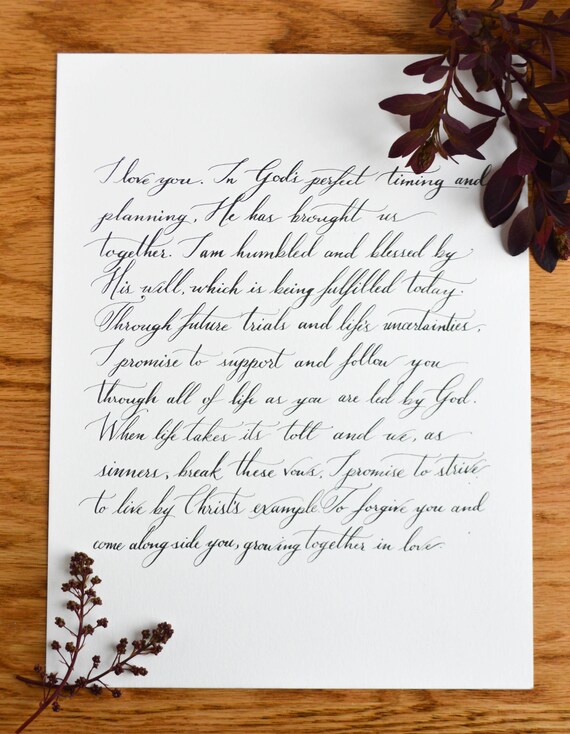 I love you. In God's perfect timing and
planning, He has brought us
together. I am humbled and blessed by
His will, which is being fulfilled today.
Through future trials and life's uncertainties,
I promise to support and follow you
through all of life as you are led by God.
When life takes its toll and we, as
sinners, break these vows, I promise to strive
to live by Christ's example To forgive you and
come along side you, growing together in love.